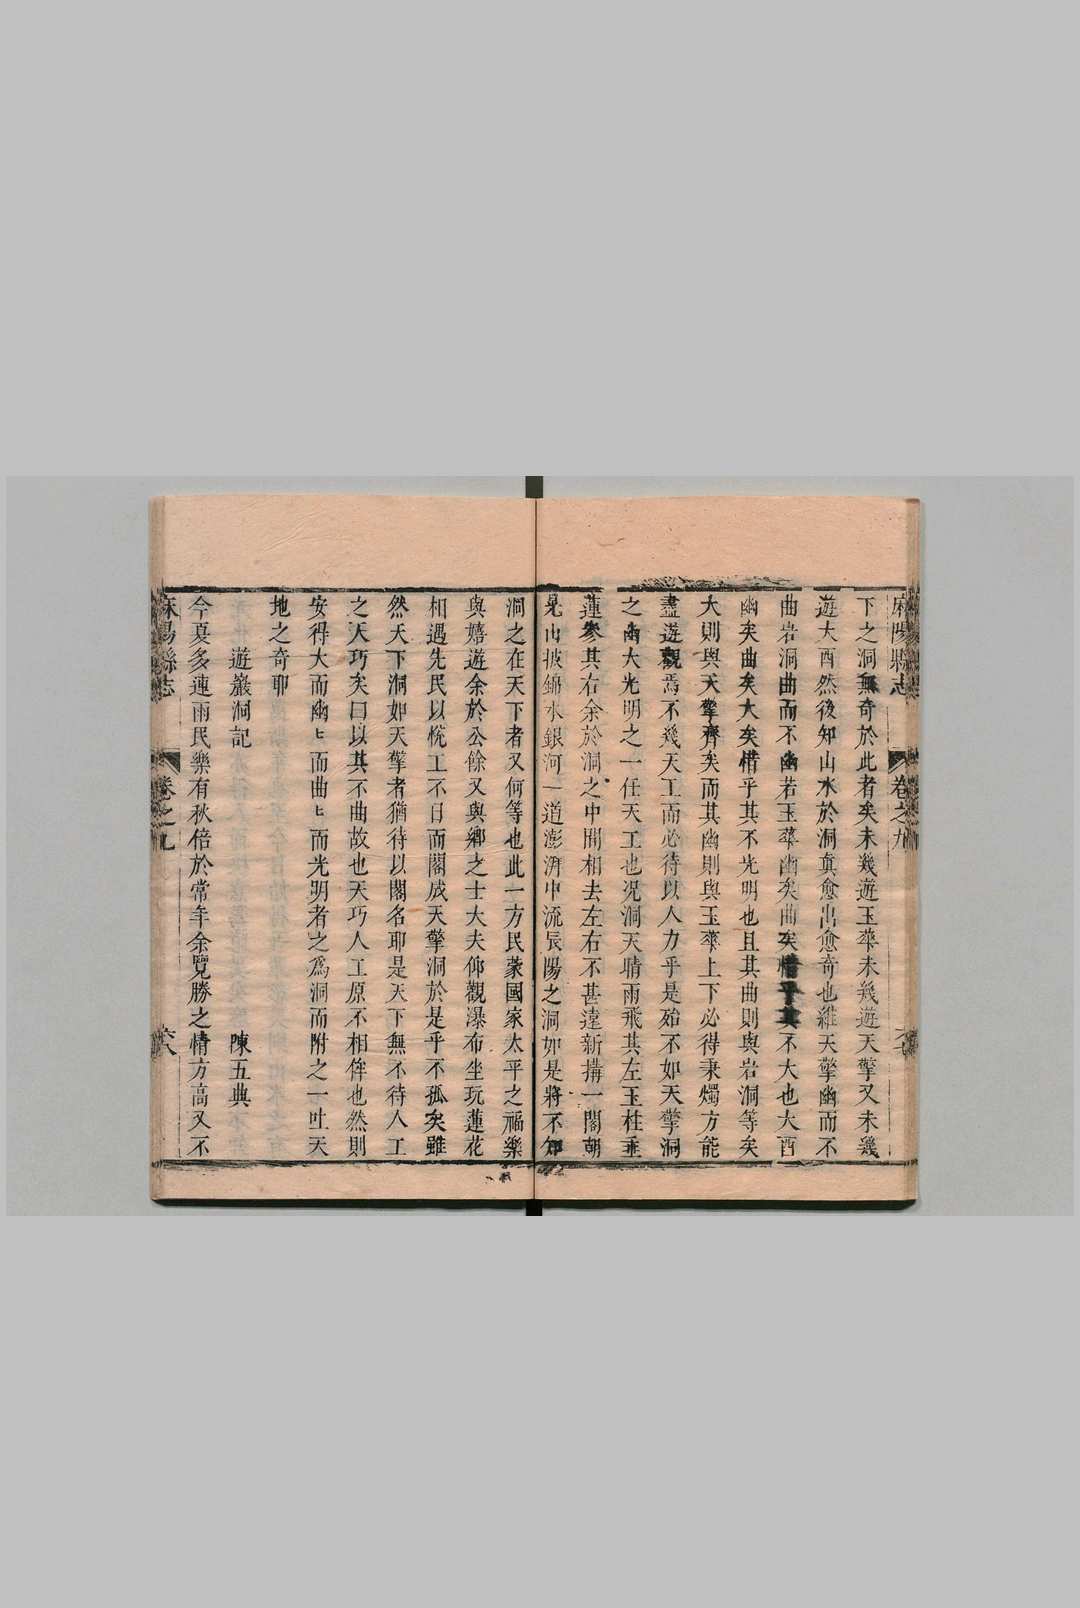 麻陽縣志　卷之九
下之洞無奇於此者矣未幾遊玉華未幾遊天擎又未幾
遊大酉然後知山水於洞眞愈出愈奇也雖天擎幽而不
曲岩洞曲而不幽若玉華幽矣曲矣惜乎其不大也大酉
幽矣曲矣大矣惜乎其不光明也且其曲則與岩洞等矣
大則與天擎齊矣而其幽則與玉華上下必得秉燭方能
盡遊觀焉不幾天工而必待以人力乎是殆不如天擎洞
之幽大光明之一任天工也况洞天晴雨飛其左玉柱垂
蓮參其右余於洞之中間相去左右不甚遠新搆一閣朝
見山披錦水銀河一道澎湃中流辰陽之洞如是將不知
洞之在天下者又何等也此一方民蒙國家太平之福樂
與嬉遊余於公餘又與鄉之士大夫仰觀瀑布坐玩蓮花
相遇先民以恱工不日而閣成天擎洞於是乎不孤矣雖
然天下洞如天擎者猶待以閣名耶是天下無不待人工
之天巧矣曰以其不曲故也天巧人工原不相侔也然則
安得大而幽ヒ而曲ヒ而光明者之爲洞而附之一吐天
地之奇耶
遊巖洞記　陳五典
今夏多連雨民樂有秋倍於常年余覽勝之情方高又不
麻陽縣志　卷之九　六八